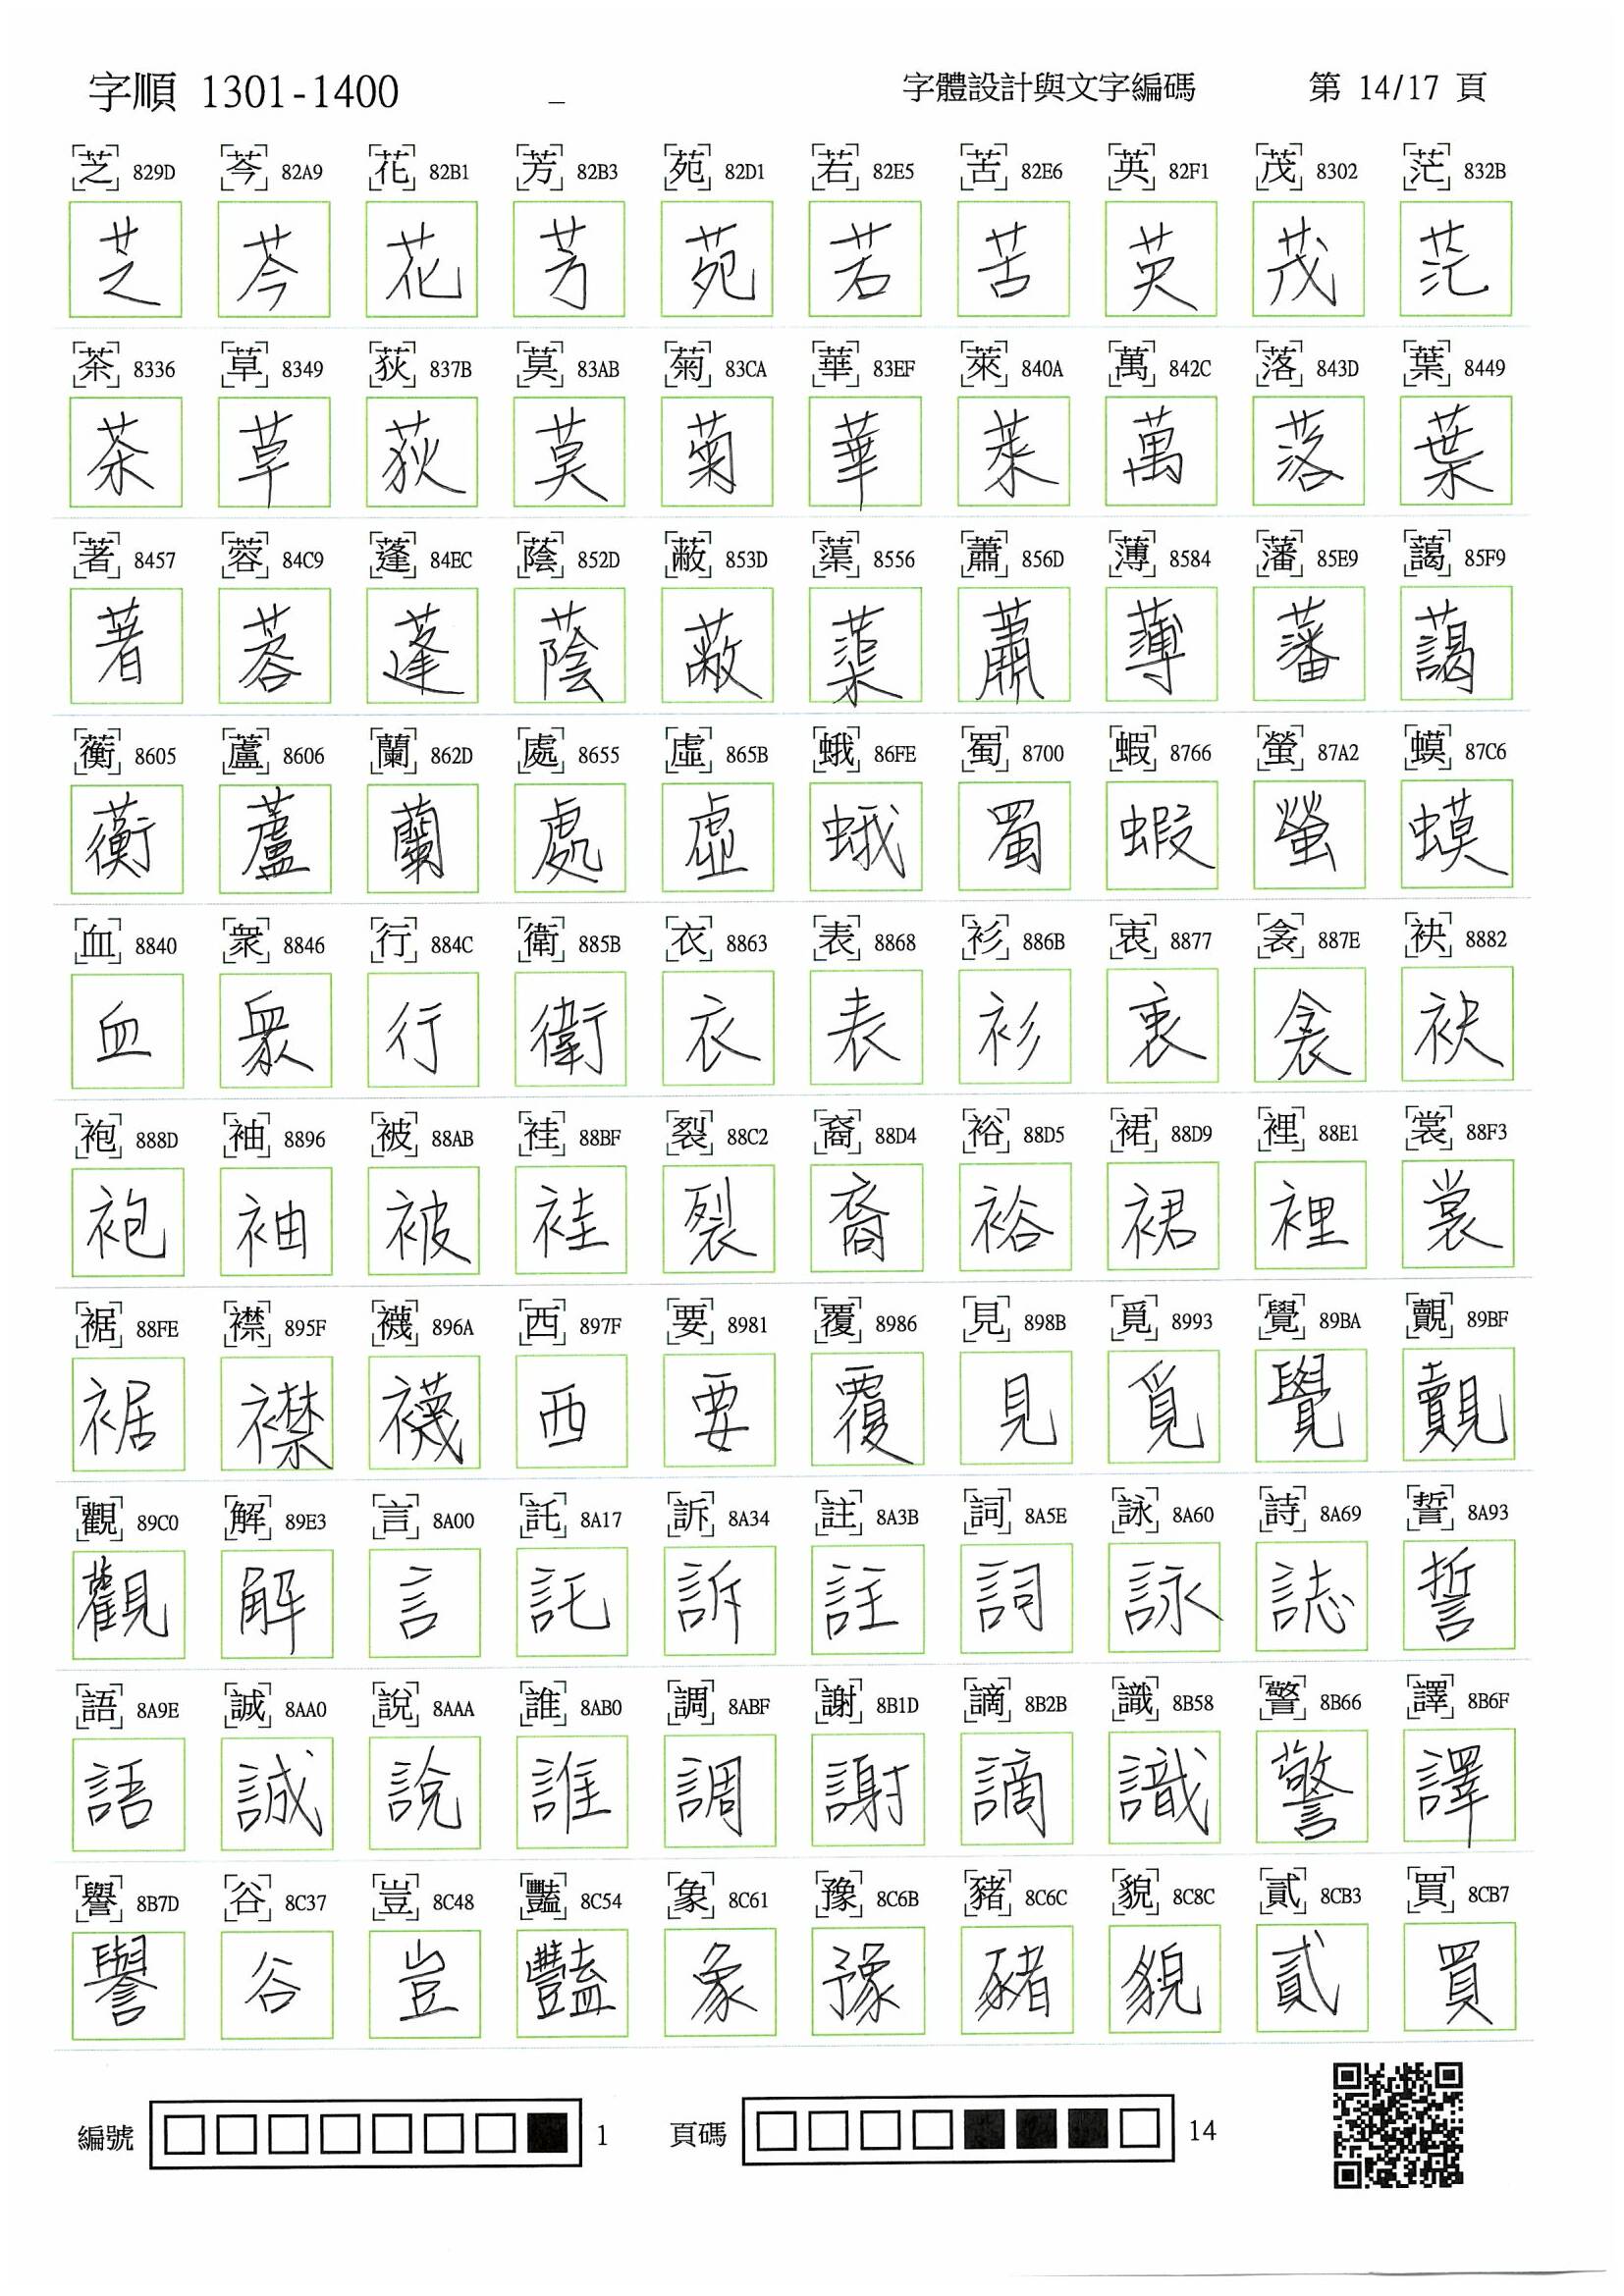 字順 1301-1400 _ 字體設計與文字編碼 第 14/17 頁
芝 829D 芩 82A9 花 82B1 芳 82B3 苑 82D1 若 82E5 苦 82E6 英 82F1 茂 8302 茫 832B
芝 芩 花 芳 苑 若 苦 英 茂 茫
茶 8336 草 8349 荻 837B 莫 83AB 菊 83CA 華 83EF 萊 840A 萬 842C 落 843D 葉 8449
茶 草 荻 莫 菊 華 萊 萬 落 葉
著 8457 蓉 84C9 蓬 84EC 蔭 852D 蔽 853D 蕖 8556 蕭 856D 薄 8584 藩 85E9 藹 85F9
著 蓉 蓬 蔭 蔽 蕖 蕭 薄 藩 藹
蘅 8605 蘆 8606 蘭 862D 處 8655 虛 865B 蛾 86FE 蜀 8700 蝦 8766 螢 87A2 蟆 87C6
蘅 蘆 蘭 處 虛 蛾 蜀 蝦 螢 蟆
血 8840 衆 8846 行 884C 衛 885B 衣 8863 表 8868 衫 886B 衷 8877 衾 887E 袂 8882
血 眾 行 衛 衣 表 衫 衷 衾 袂
袍 888D 袖 8896 被 88AB 袿 88BF 裂 88C2 裔 88D4 裕 88D5 裙 88D9 裡 88E1 裳 88F3
袍 袖 被 袿 裂 裔 裕 裙 裡 裳
裾 88FE 襟 895F 襪 896A 西 897F 要 8981 覆 8986 見 898B 覓 8993 覺 89BA 覿 89BF
裾 襟 襪 西 要 覆 見 覓 覺 覿
觀 89C0 解 89E3 言 8A00 託 8A17 訴 8A34 註 8A3B 詞 8A5E 詠 8A60 詩 8A69 誓 8A93
觀 解 言 託 訴 註 詞 詠 誌 誓
語 8A9E 誠 8AA0 說 8AAA 誰 8AB0 調 8ABF 謝 8B1D 謫 8B2B 識 8B58 警 8B66 譯 8B6F
語 誠 說 誰 調 謝 謫 識 警 譯
譽 8B7D 谷 8C37 豈 8C48 豔 8C54 象 8C61 豫 8C6B 豬 8C6C 貌 8C8C 貳 8CB3 買 8CB7
譽 谷 豈 豔 象 豫 豬 貌 貳 買
編號 1 頁碼 14